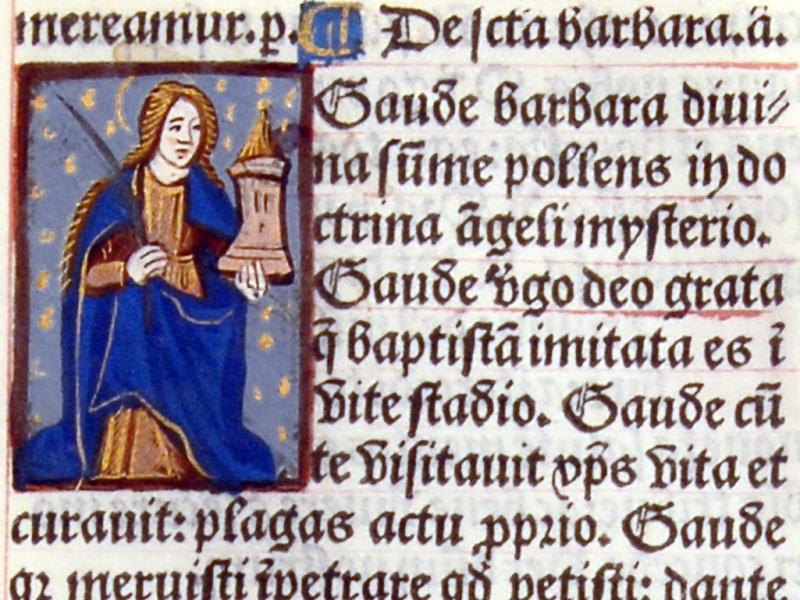 mereamur. p. ¶ De scta barbara. ā.
Gaude barbara diui⸗
na sūme pollens in do
ctrina āgeli mysterio.
Gaude v̄go deo grata
q̄ baptistā imitata es ī
vite stadio. Gaude cū
te visitauit xp̄s vita et
curauit: plagas actu ꝓprio. Gaude
qꝛ meruisti īpetrare qd̄ petisti: dante